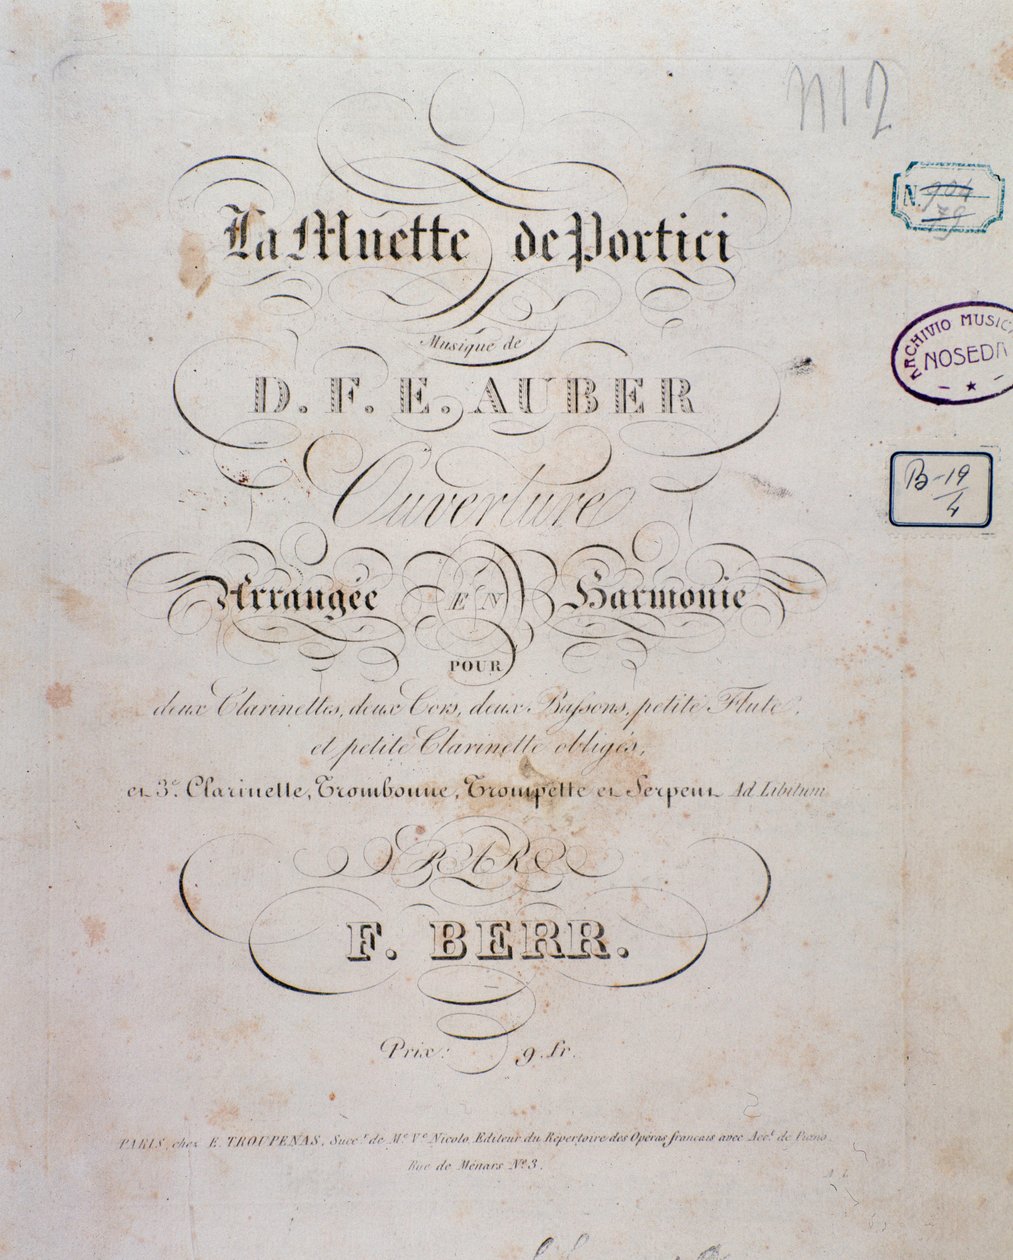 N 12
N. 904
79
La Muette de Portici
Musique de
D. F. E. AUBER
ARCHIVIO MUSIC
NOSEDA
Ouverture
B-19
4
Arrangée EN Harmonie
POUR
deux Clarinettes, deux Cors, deux Bassons, petite Flute,
et petite Clarinette obligés,
et 3e. Clarinette, Trombonne, Trompette et Serpent Ad Libitum
PAR
F. BERR.
Prix: 9. fr.
PARIS, chez E. TROUPENAS, Succr. de Me. Ve. Nicolo, Editeur du Répertoire des Opéras français avec Acct. de Piano
Rue de Ménars No. 3.